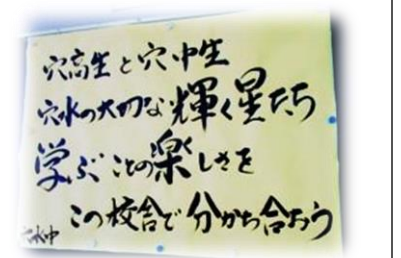 穴高生と穴中生
穴水の大切な輝く星たち
学ぶことの楽しさを
この校舎で分かち合おう
穴水中